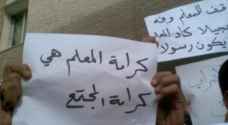 قف للمعلم وفه
التبجيلا كاد المعلم
يكون رسولا
كرامة المعلم هي
كرامة المجتمع